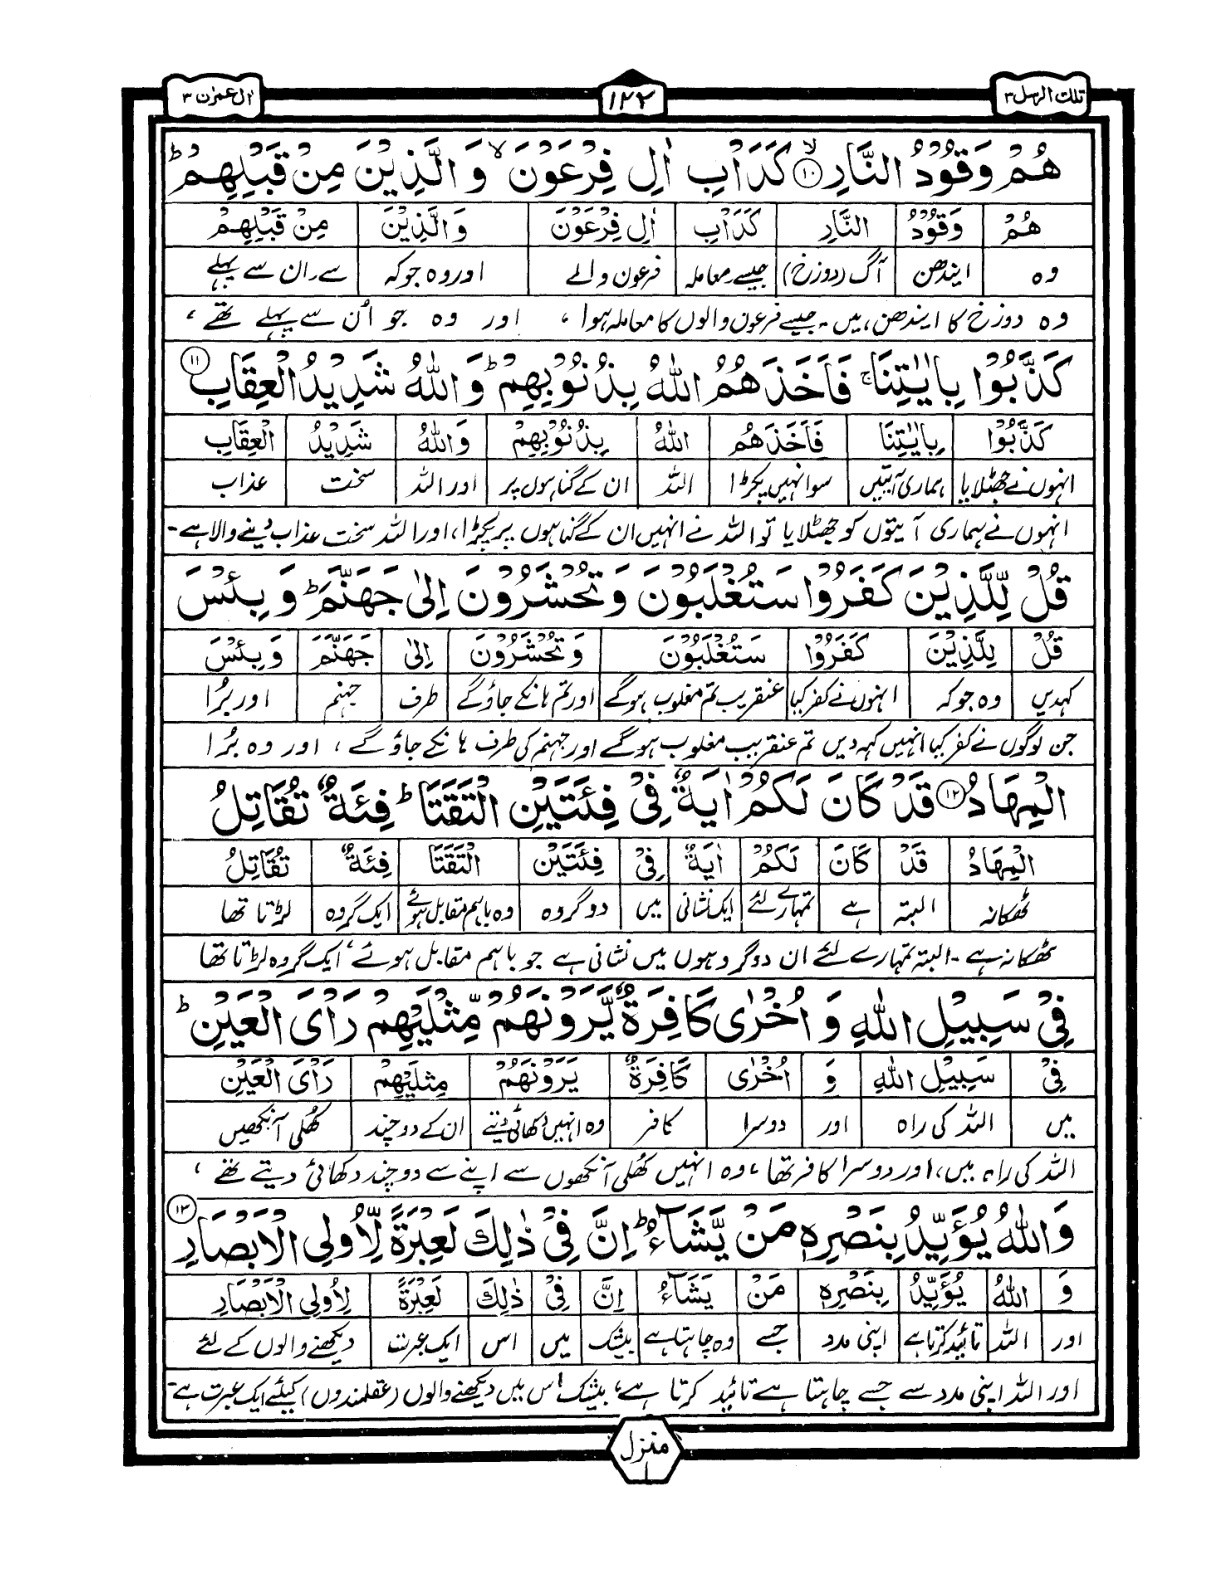 تلك الرسل ٣
١٢٢
ال عمرٰن ٣
هُمْ وَقُوْدُ النَّارِ ۙ﴿١٠﴾ كَدَاْبِ اٰلِ فِرْعَوْنَ ۙ وَالَّذِيْنَ مِنْ قَبْلِهِمْ ؕ
هُمْ وَقُوْدُ النَّارِ كَدَاْبِ اٰلِ فِرْعَوْنَ وَالَّذِيْنَ مِنْ قَبْلِهِمْ
وہ ایندھن آگ (دوزخ) جیسے معاملہ فرعون والے اور وہ جو کہ سے۔ ان سے پہلے
وہ دوزخ کا ایندھن ہیں۔ جیسے فرعون والوں کا معاملہ ہوا، اور وہ جو اُن سے پہلے تھے،
كَذَّبُوْا بِاٰيٰتِنَا ۚ فَاَخَذَهُمُ اللّٰهُ بِذُنُوْبِهِمْ ؕ وَاللّٰهُ شَدِيْدُ الْعِقَابِ ﴿١١﴾
كَذَّبُوْا بِاٰيٰتِنَا فَاَخَذَهُمُ اللّٰهُ بِذُنُوْبِهِمْ وَاللّٰهُ شَدِيْدُ الْعِقَابِ
انہوں نے جھٹلایا ہماری آیتیں سو انہیں پکڑا اللہ ان کے گناہوں پر اور اللہ سخت عذاب
انہوں نے ہماری آیتوں کو جھٹلایا تو اللہ نے انہیں ان کے گناہوں پر پکڑا، اور اللہ سخت عذاب دینے والا ہے۔
قُلْ لِّلَّذِيْنَ كَفَرُوْا سَتُغْلَبُوْنَ وَتُحْشَرُوْنَ اِلٰى جَهَنَّمَ ؕ وَبِئْسَ
قُلْ لِلَّذِيْنَ كَفَرُوْا سَتُغْلَبُوْنَ وَتُحْشَرُوْنَ اِلٰى جَهَنَّمَ وَبِئْسَ
کہدیں وہ جو کہ انہوں نے کفر کیا عنقریب تم مغلوب ہوگے اور تم ہانکے جاؤگے طرف جہنم اور بُرا
جن لوگوں نے کفر کیا انہیں کہہ دیں تم عنقریب مغلوب ہوگے اور جہنم کی طرف ہانکے جاؤگے، اور وہ بُرا
الْمِهَادُ ﴿١٢﴾ قَدْ كَانَ لَكُمْ اٰيَةٌ فِيْ فِئَتَيْنِ الْتَقَتَا ؕ فِئَةٌ تُقَاتِلُ
الْمِهَادُ قَدْ كَانَ لَكُمْ اٰيَةٌ فِيْ فِئَتَيْنِ الْتَقَتَا فِئَةٌ تُقَاتِلُ
ٹھکانہ البتہ ہے تمہارے لئے ایک نشانی میں دو گروہ وہ باہم مقابل ہوئے ایک گروہ لڑتا تھا
ٹھکانہ ہے۔ البتہ تمہارے لئے ان دو گروہوں میں نشانی ہے جو باہم مقابل ہوئے، ایک گروہ لڑتا تھا
فِيْ سَبِيْلِ اللّٰهِ وَاُخْرٰى كَافِرَةٌ يَّرَوْنَهُمْ مِّثْلَيْهِمْ رَاْىَ الْعَيْنِ ؕ
فِيْ سَبِيْلِ اللّٰهِ وَ اُخْرٰى كَافِرَةٌ يَرَوْنَهُمْ مِثْلَيْهِمْ رَاْىَ الْعَيْنِ
میں اللہ کی راہ اور دوسرا کافر وہ انہیں دکھائی دیتے ان کے دو چند کھلی آنکھیں
اللہ کی راہ میں، اور دوسرا کافر تھا، وہ انہیں کھلی آنکھوں سے اپنے سے دو چند دکھائی دیتے تھے،
وَاللّٰهُ يُؤَيِّدُ بِنَصْرِهٖ مَنْ يَّشَآءُ ؕ اِنَّ فِيْ ذٰلِكَ لَعِبْرَةً لِّاُولِى الْاَبْصَارِ ﴿١٣﴾
وَ اللّٰهُ يُؤَيِّدُ بِنَصْرِهٖ مَنْ يَشَآءُ اِنَّ فِيْ ذٰلِكَ لَعِبْرَةً لِاُولِى الْاَبْصَارِ
اور اللہ تائید کرتا ہے اپنی مدد جسے وہ چاہتا ہے بیشک میں اس ایک عبرت دیکھنے والوں کے لئے
اور اللہ اپنی مدد سے جسے چاہتا ہے تائید کرتا ہے، بیشک اس میں دیکھنے والوں (عقلمندوں) کیلئے ایک عبرت ہے۔
منزل
١